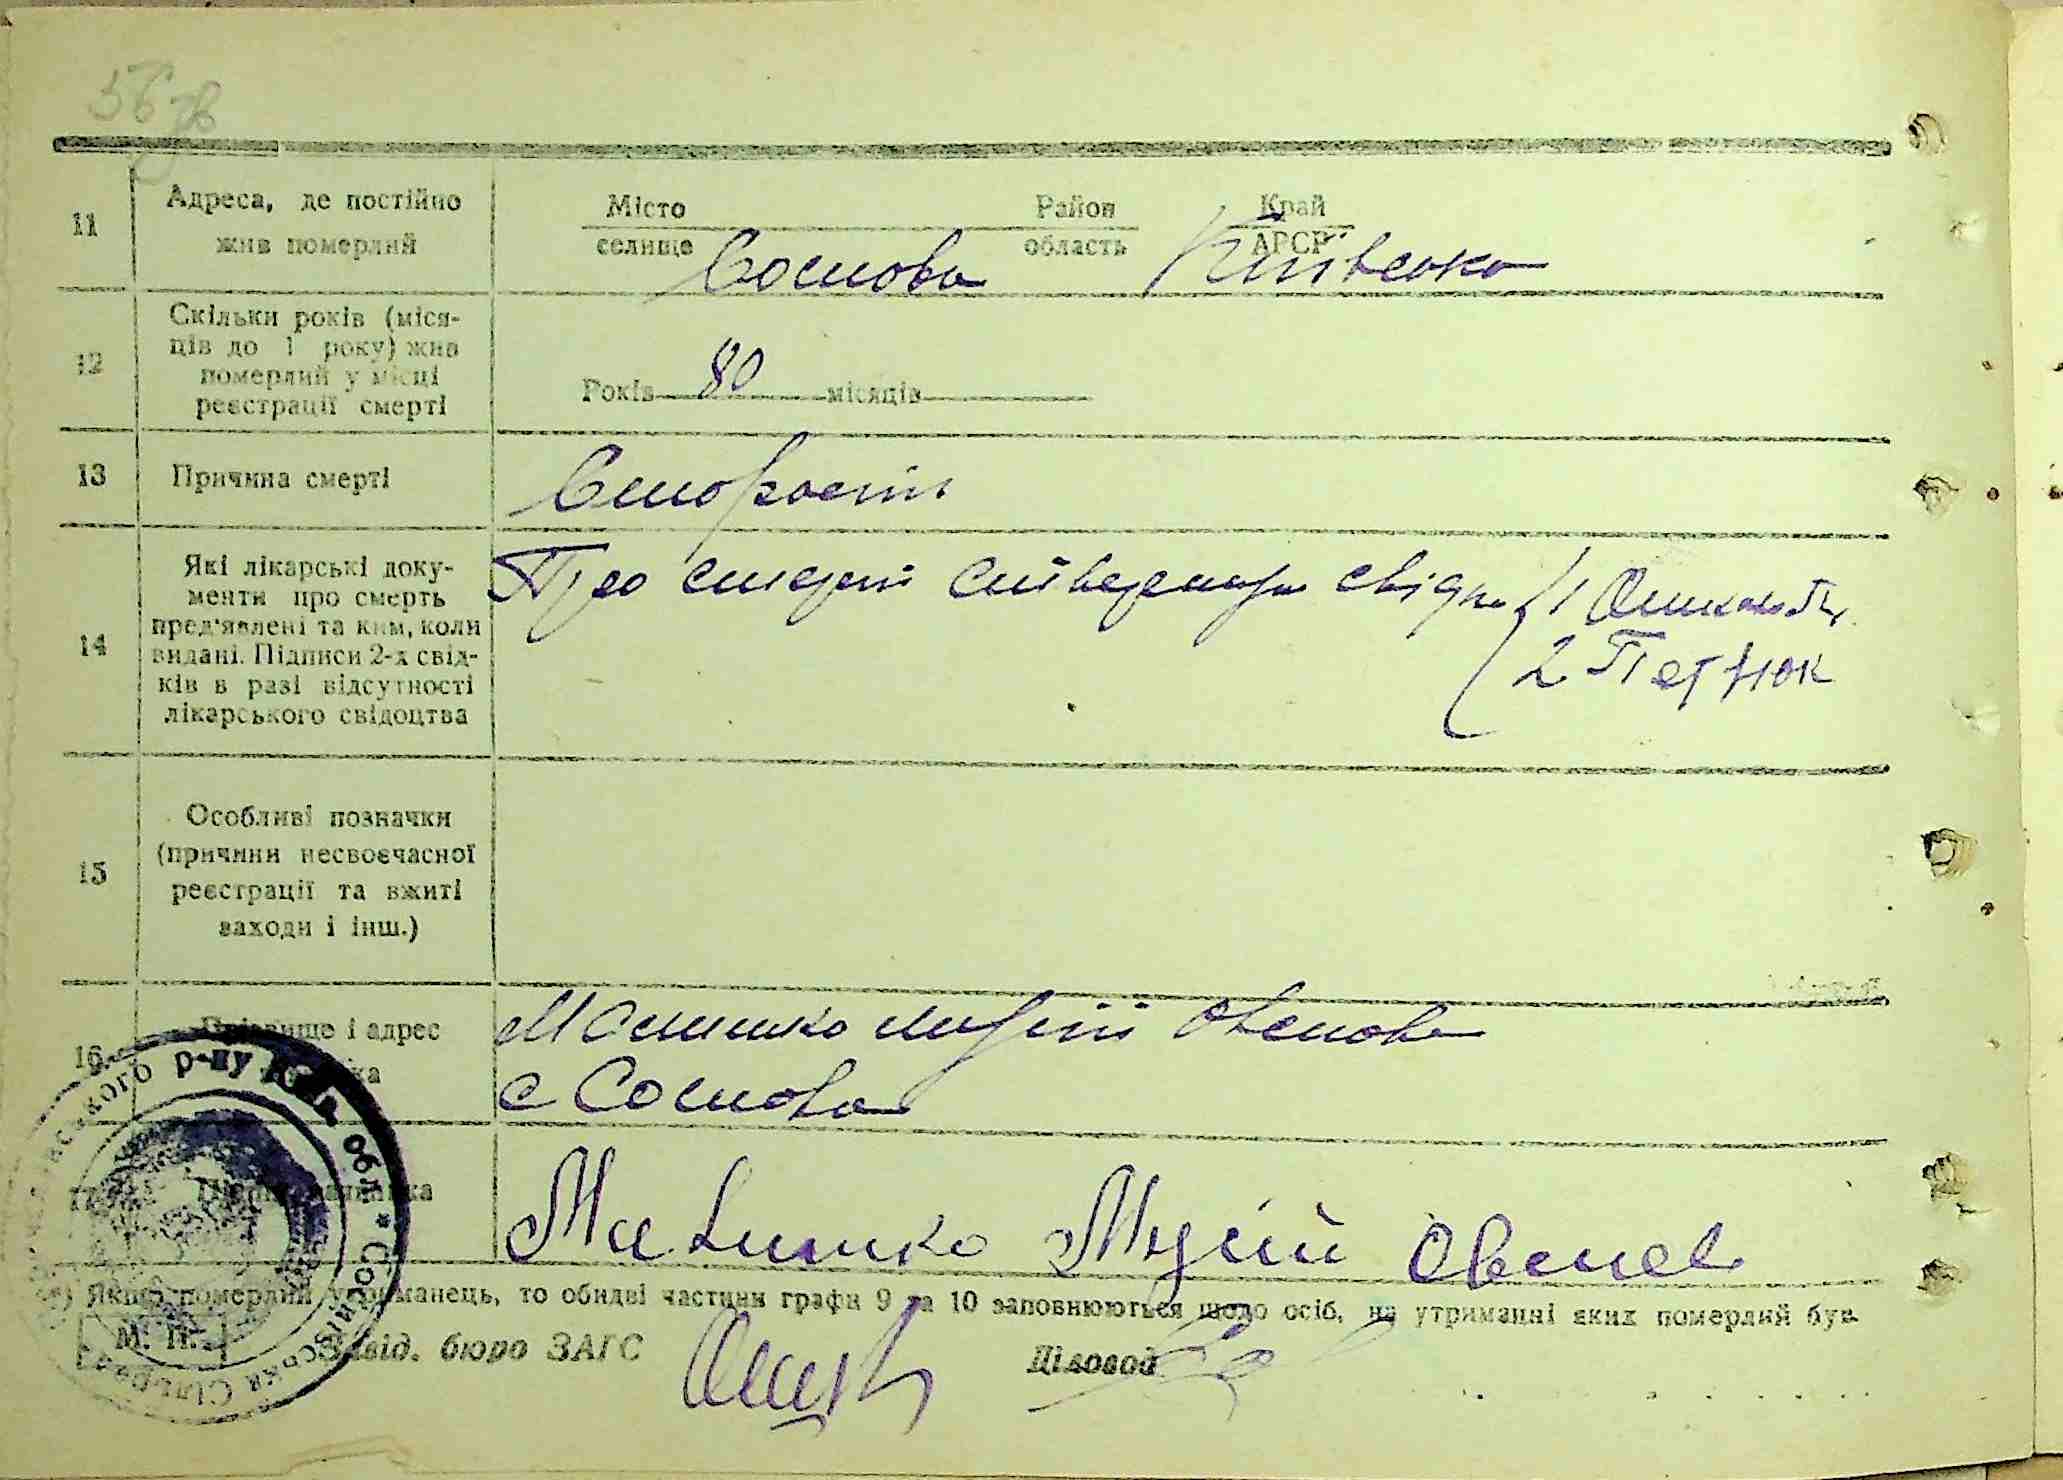 56 зв
11
Адреса, де постійно
жив померлий
Місто
селище
Район
область
Край
АРСР
Соснова Київсько
12
Скільки років (міся-
ців до 1 року) жив
померлий у місці
реєстрації смерті
Років 80 місяців
13
Причина смерті
Старость
14
Які лікарські доку-
менти про смерть
пред'явлені та ким, коли
видані. Підписи 2-х свід-
ків в разі відсутності
лікарського свідоцтва
Про смерт свідки 1
2 Петрюк
15
Особливі позначки
(причини несвоєчасної
реєстрації та вжиті
заходи і інш.)
16
Прізвище і адрес
Мусій Овсиово
с Соснова
17
Мусій Овсиев
*) Якщо померлий утриманець, то обидві частини графи 9 та 10 заповнюються щодо осіб, на утриманні яких померлий був.
М. П.
Завід. бюро ЗАГС
Діловод
р-ну Київ. обл. * Соснівська Сільрада